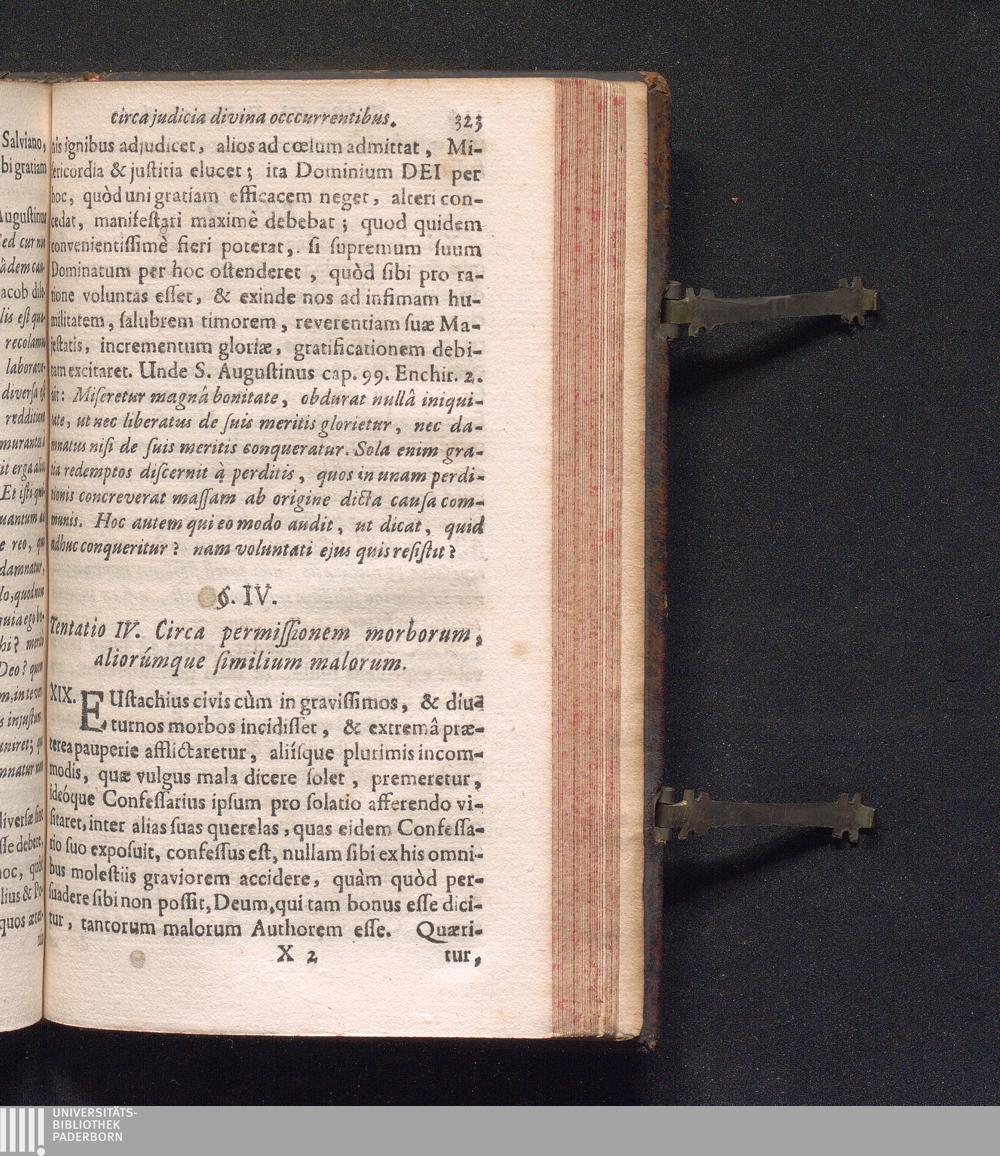 circa judicia divina occcurrentibus. 323
nis ignibus adjudicet, alios ad cœlum admittat, Mi-
sericordia & justitia elucet; ita Dominium DEI per
hoc, quòd uni gratiam efficacem neget, alteri con-
cedat, manifestari maximè debebat; quod quidem
convenientissimè fieri poterat, si supremum suum
Dominatum per hoc ostenderet, quòd sibi pro ra-
tione voluntas esset, & exinde nos ad infimam hu-
militatem, salubrem timorem, reverentiam suæ Ma-
jestatis, incrementum gloriæ, gratificationem debi-
tam excitaret. Unde S. Augustinus cap. 99. Enchir. 2.
ait: Miseretur magnâ bonitate, obdurat nullâ iniqui-
tate, ut nec liberatus de suis meritis glorietur, nec da-
mnatus nisi de suis meritis conqueratur. Sola enim gra-
tia redemptos discernit à perditis, quos in unam perdi-
tionis concreverat massam ab origine dicta causa com-
munis. Hoc autem qui eo modo audit, ut dicat, quid
adhuc conqueritur? nam voluntati ejus quis resistit?
§. IV.
Tentatio IV. Circa permissionem morborum,
aliorúmque similium malorum.
XIX. EUstachius civis cùm in gravissimos, & diu-
turnos morbos incidisset, & extremâ præ-
terea pauperie afflictaretur, aliísque plurimis incom-
modis, quæ vulgus mala dicere solet, premeretur,
ideóque Confessarius ipsum pro solatio afferendo vi-
sitaret, inter alias suas querelas, quas eidem Confessa-
rio suo exposuit, confessus est, nullam sibi ex his omni-
bus molestiis graviorem accidere, quàm quòd per-
suadere sibi non possit, Deum, qui tam bonus esse dici-
tur, tantorum malorum Authorem esse. Quæri-
X 2 tur,
UNIVERSITÄTS-
BIBLIOTHEK
PADERBORN